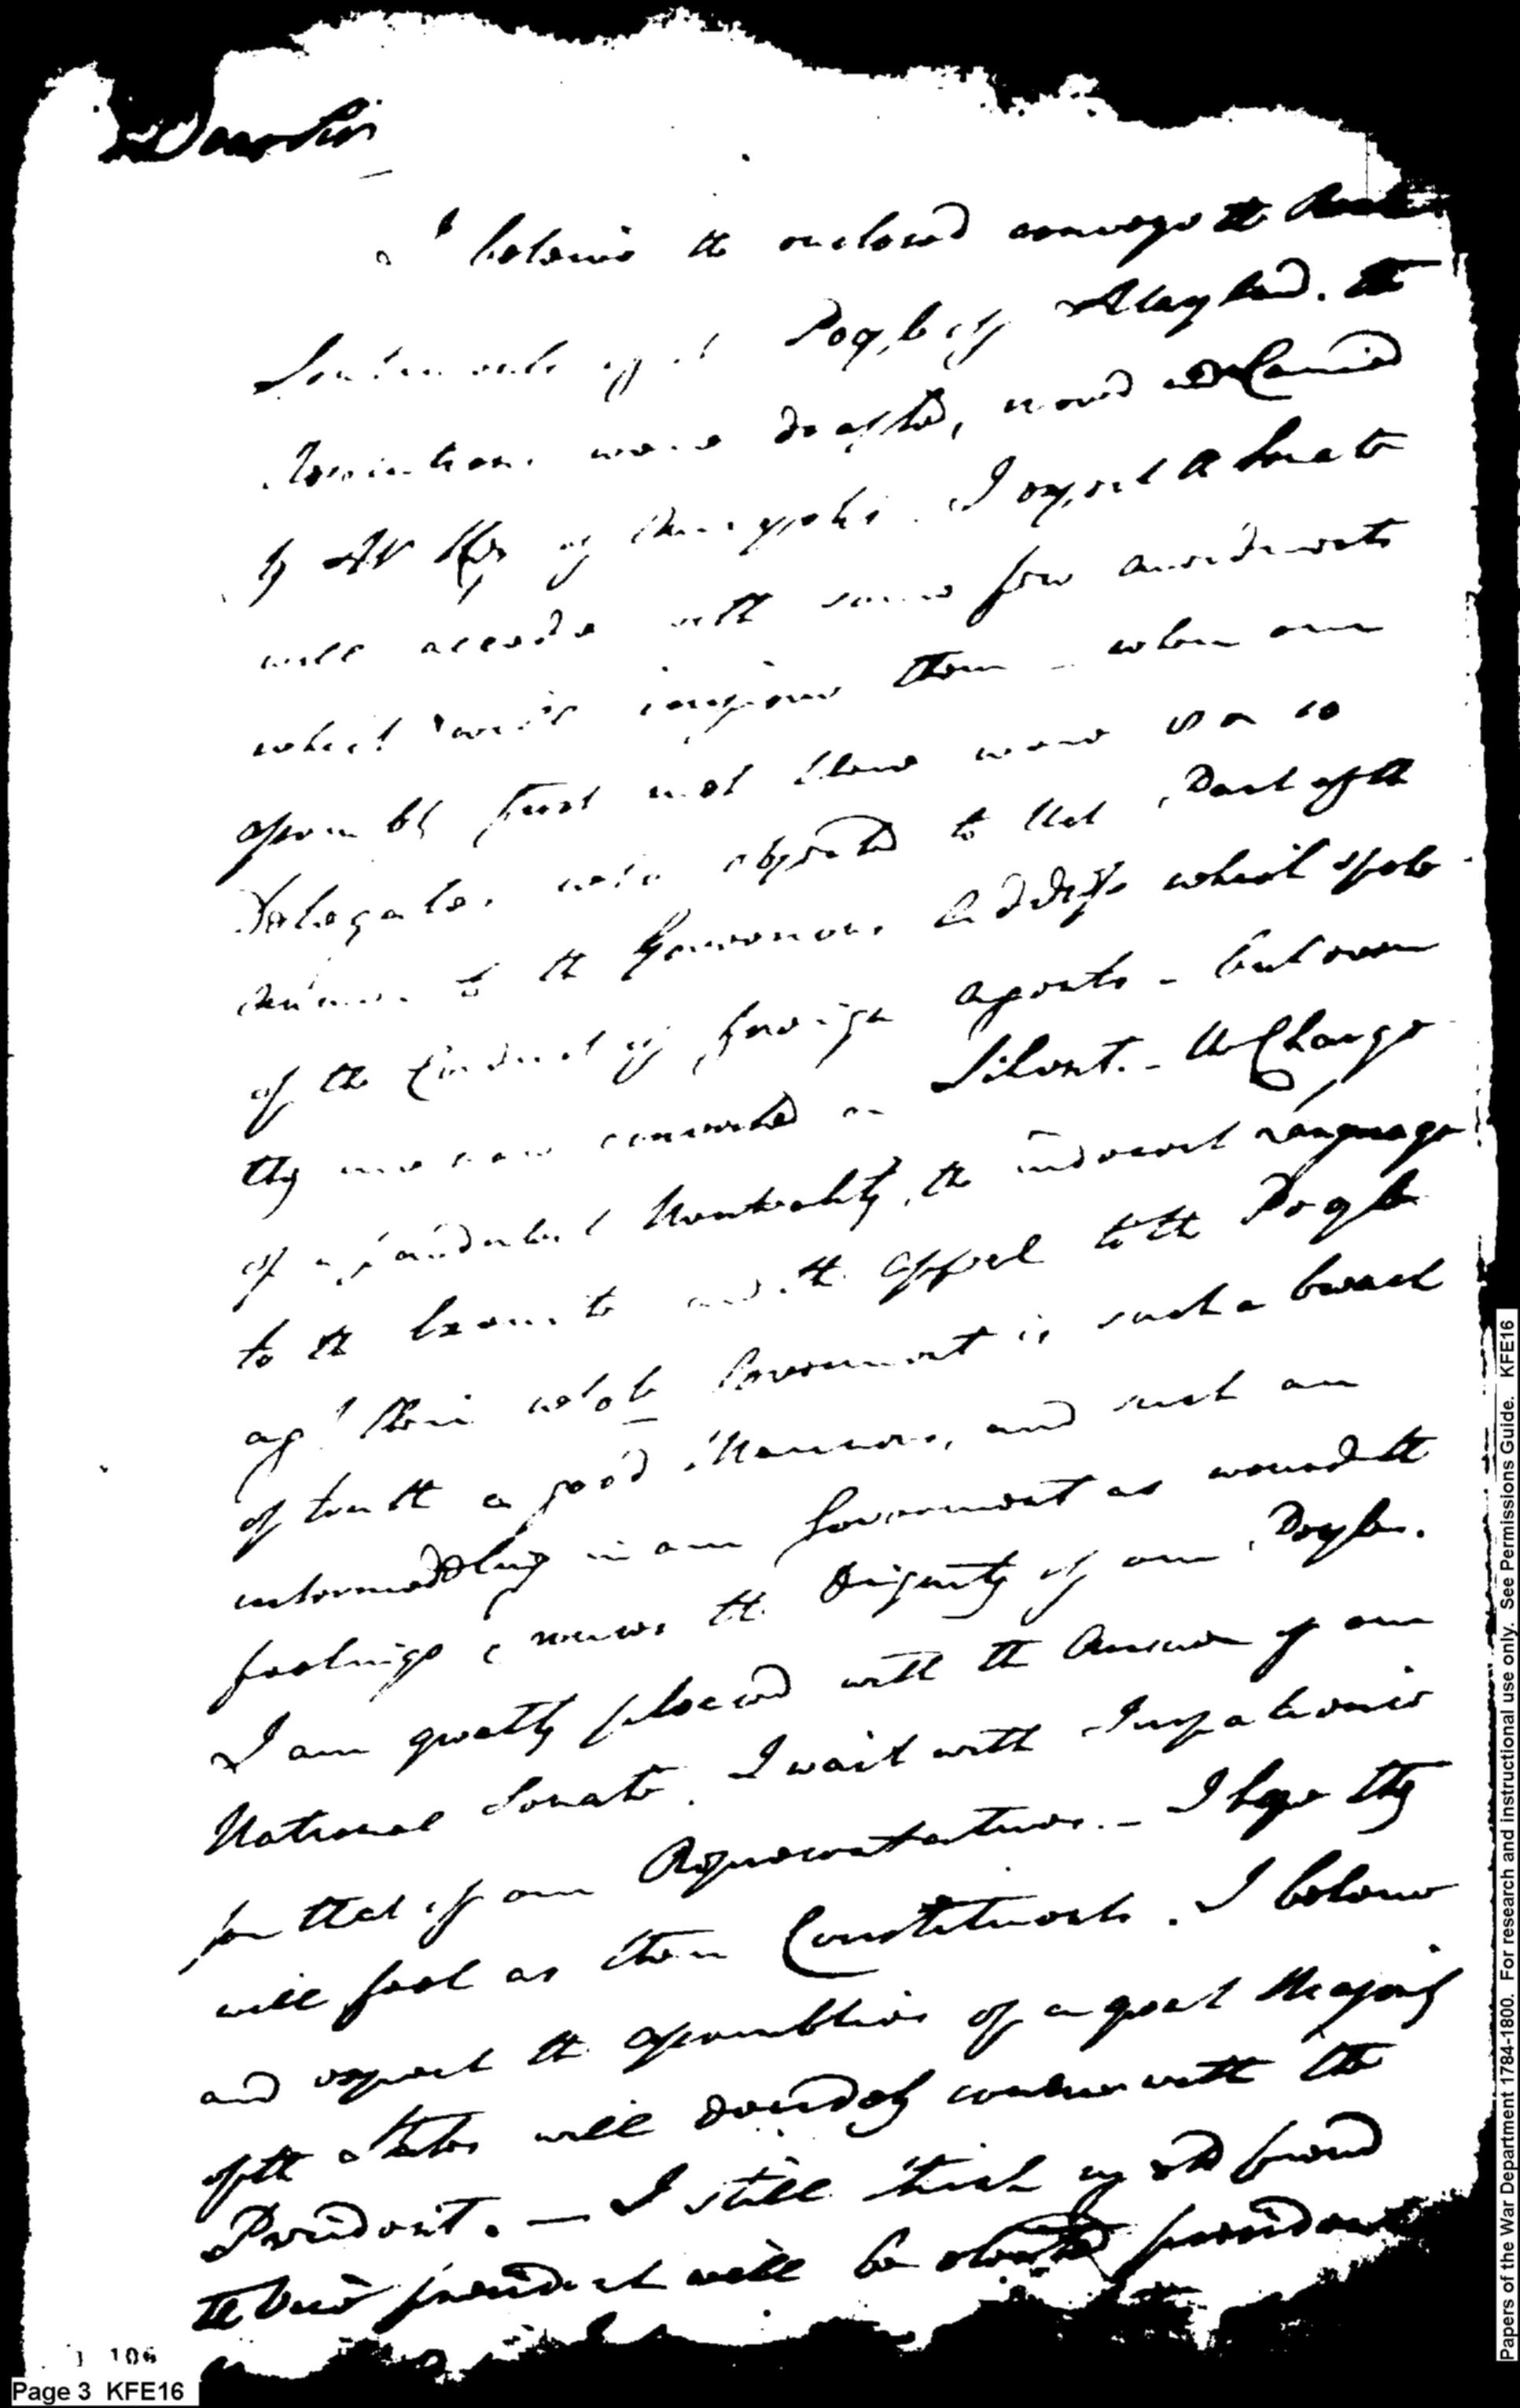 Dear Sir
I believe the enclosed conveys the real
Sentiments of the People of Maryland. the
resolutions were drafted, moved and Carried
by Mr Key of Annapolis. I expect a Senate
will accede with some few amendments
which will improve them - when our
assembly first met there were
Delegates who objected to that Part of the
answer to the Governours Address which spoke
of the Conduct of foreign agents - but even
they are now converted or Silent. - the Charge
of Neutrality, the indecent Language
to the and the appeal to the People
agt their whole Government is such a breach
of truth & good Manners, and such an
intermeddling in our Government as wounds the
feelings & the Dignity of our People.
I am greatly pleased with the Answer of our
National Senate. I wait with Impatience
for that of our Representatives. - I hope they
will feel as their Constituents. I believe
and expect the assemblies of a great Majority
of the States will decidedly concur with the
President. - I still think my old friend
the Vice president will be elected president
106
Page 3 KFE16
Papers of the War Department 1784-1800. For research and instructional use only. See Permissions Guide. KFE16